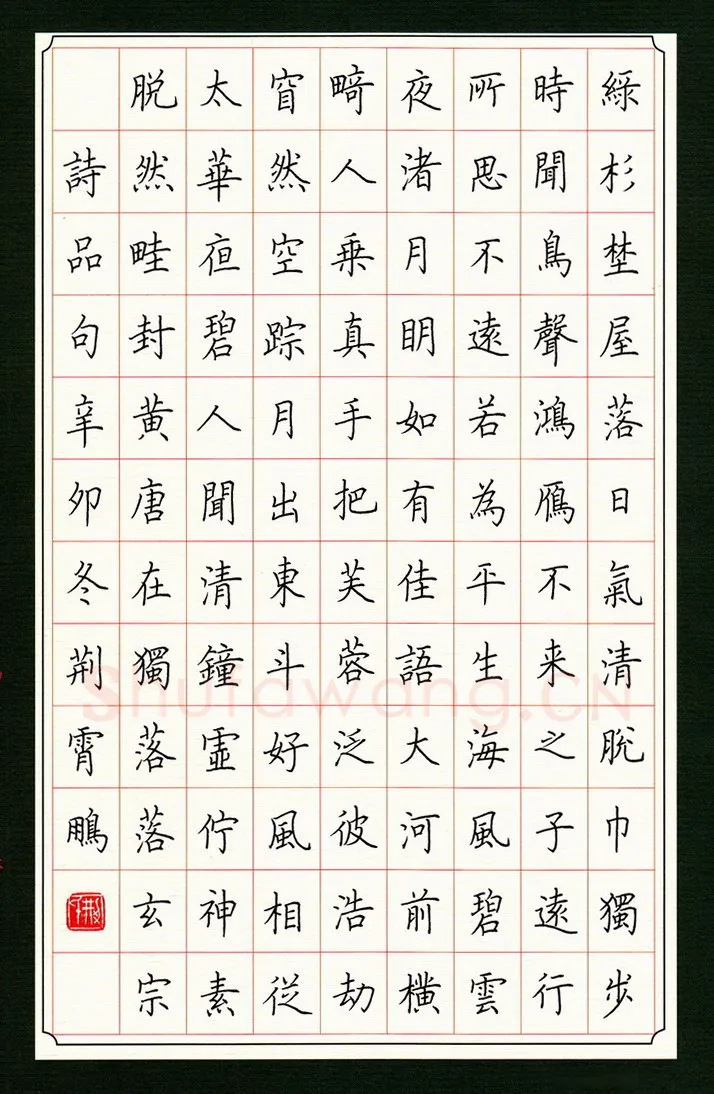 綠杉埜屋落日氣清脫巾獨步
時聞鳥聲鴻鴈不来之子遠行
所思不遠若為平生海風碧雲
夜渚月眀如有佳語大河前橫
畸人乗真手把芙蓉泛彼浩劫
窅然空踪月出東斗好風相從
太華夜碧人聞清鐘虛佇神素
脫然畦封黃唐在獨落落玄宗
詩品句辛卯冬荆霄鵬
Shufawang.CN